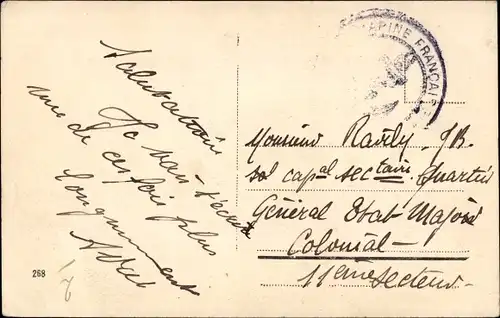 Salutations
Je vous écrirai
une de ces fois plus
longuement
MARINE FRANÇAISE
Monsieur Railly J.B.
sol capal sectaire Quartier
Général Etat-Major
Colonial
11ème secteur
268